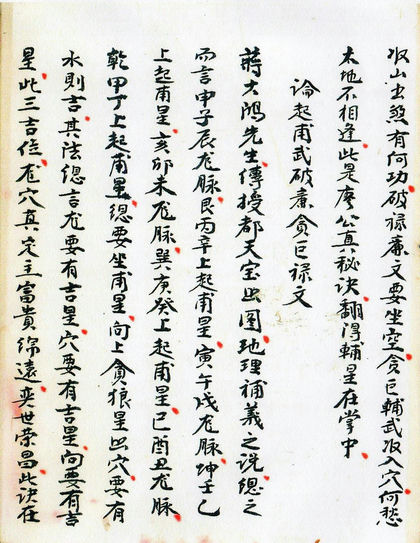 收山出煞有何功破祿廉文要坐空貪巨輔武收入穴何愁
天地不相逢此是廖公真秘訣翻得輔星在掌中
論起甫武破廉貪巨祿文
蔣大鴻先生傳授都天宝出圖地理補義之说總之
而言甲子辰龙脉艮丙辛上起甫星寅午戌龙脉坤壬乙
上起甫星亥卯未龙脉巽庚癸上起甫星巳酉丑龙脉
乾甲丁上起甫星總要坐甫星向上貪狼星出穴要有
水則吉其法總言龙要有吉星穴要有吉星向要有吉
星此三吉位龙穴真定主富貴綿遠奕世荣昌此訣在